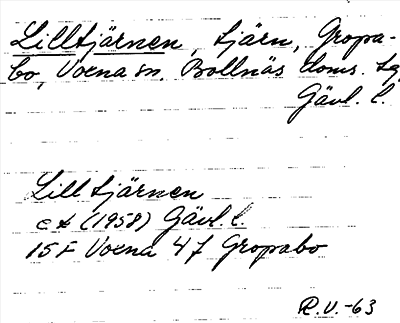 Lilltjärnen, tjärn, Gropa-
bo, Voxna sn. Bollnäs doms. tg
Gävl. l.
Lilltjärnen
ek (1958) Gävl. l.
15F Voxna 4f Gropabo
R.V.-63